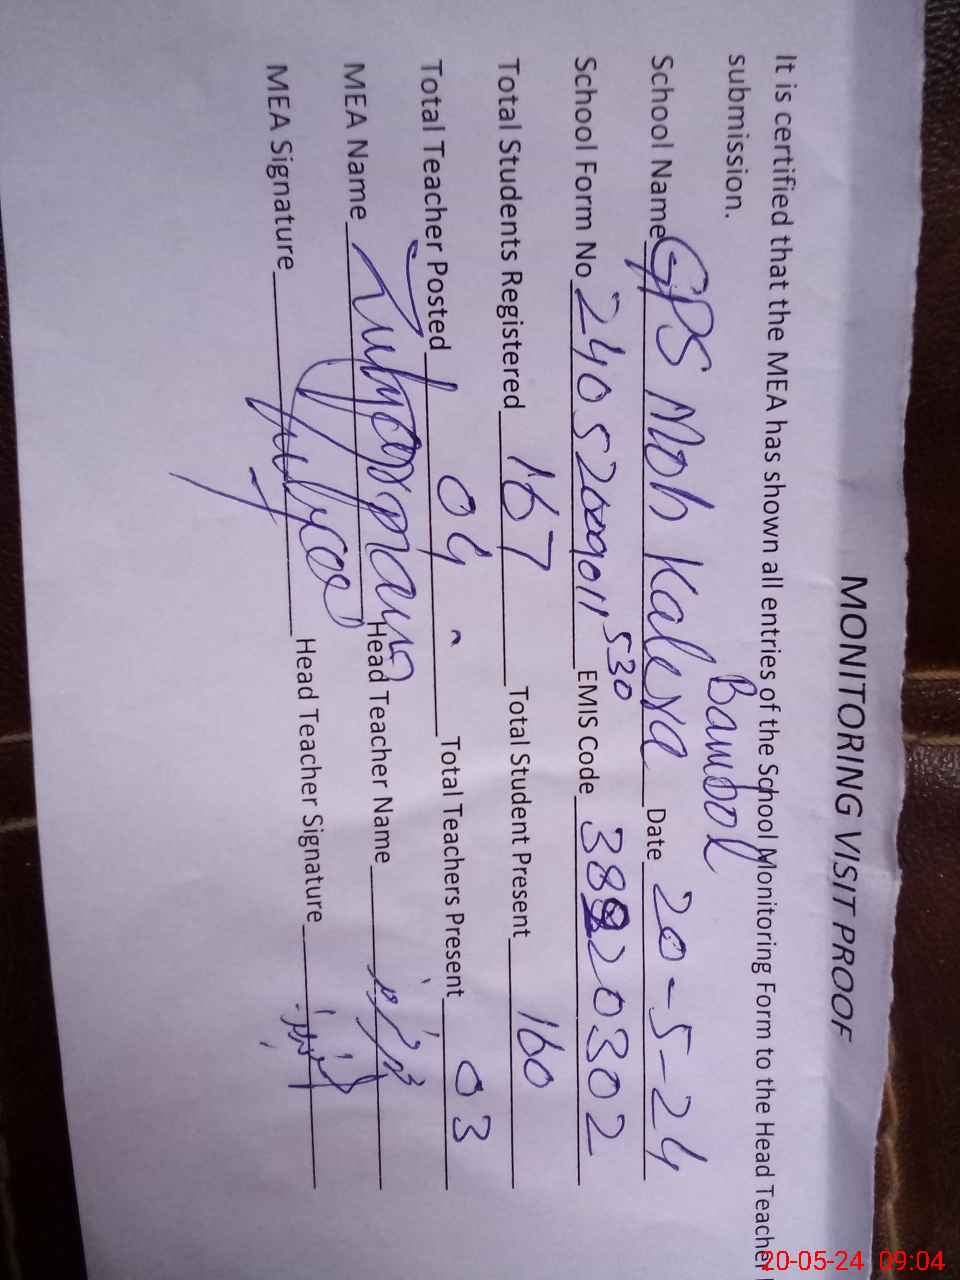 MONITORING VISIT PROOF
It is certified that the MEA has shown all entries of the School Monitoring Form to the Head Teacher
submission.
Bambol
School Name GPS Moh Kalexa Date 20-5-24
School Form No 24052009011530 EMIS Code 38820302
Total Students Registered 167 Total Student Present 160
Total Teacher Posted 04 Total Teachers Present 03
MEA Name Head Teacher Name
MEA Signature Head Teacher Signature
20-05-24 09:04